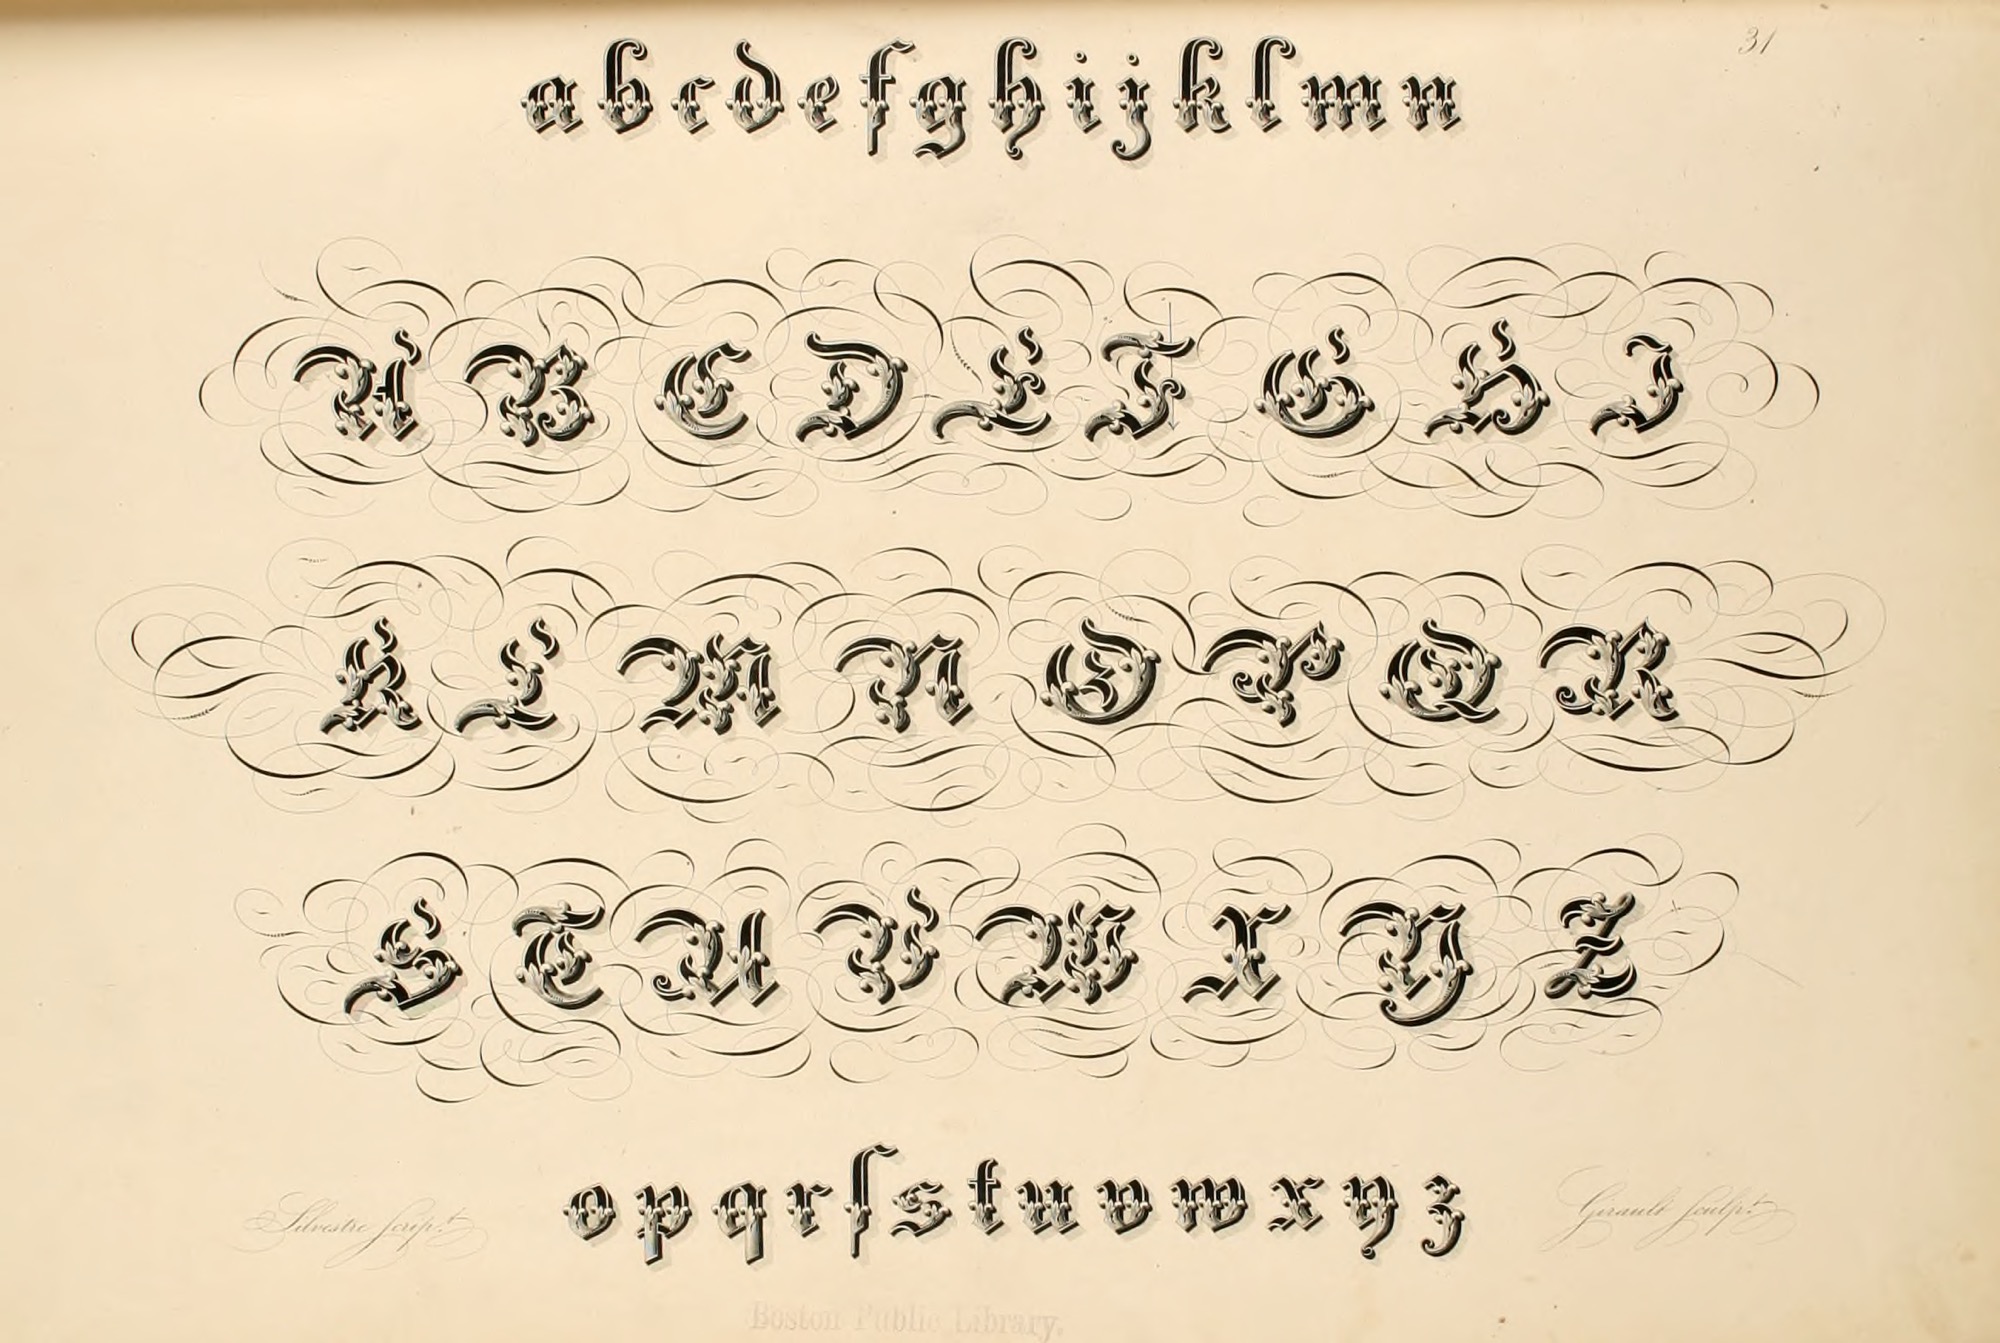 31
abcdefghijklmn
ABCDEFGHI
KLMNOPQR
STUVWXYZ
opqrſstuvwxyz
Silvestre scripᵗ. Girault Sculpᵗ.
Boston Public Library.